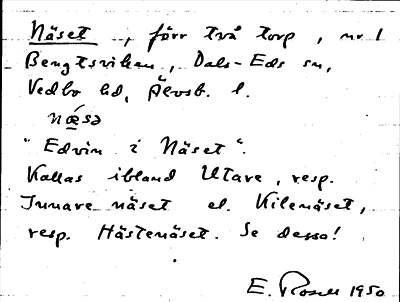 Näset, förr två torp, nr 1
Bengtsviken, Dals-Eds sn,
Vedbo hd, Älvsb. l.
næ̂sə
"Edvin i Näset".
Kallas ibland Utare, resp.
Innare näset el. Kilenäset,
resp. Hästenäset. Se dessa!
E. Rosell 1950